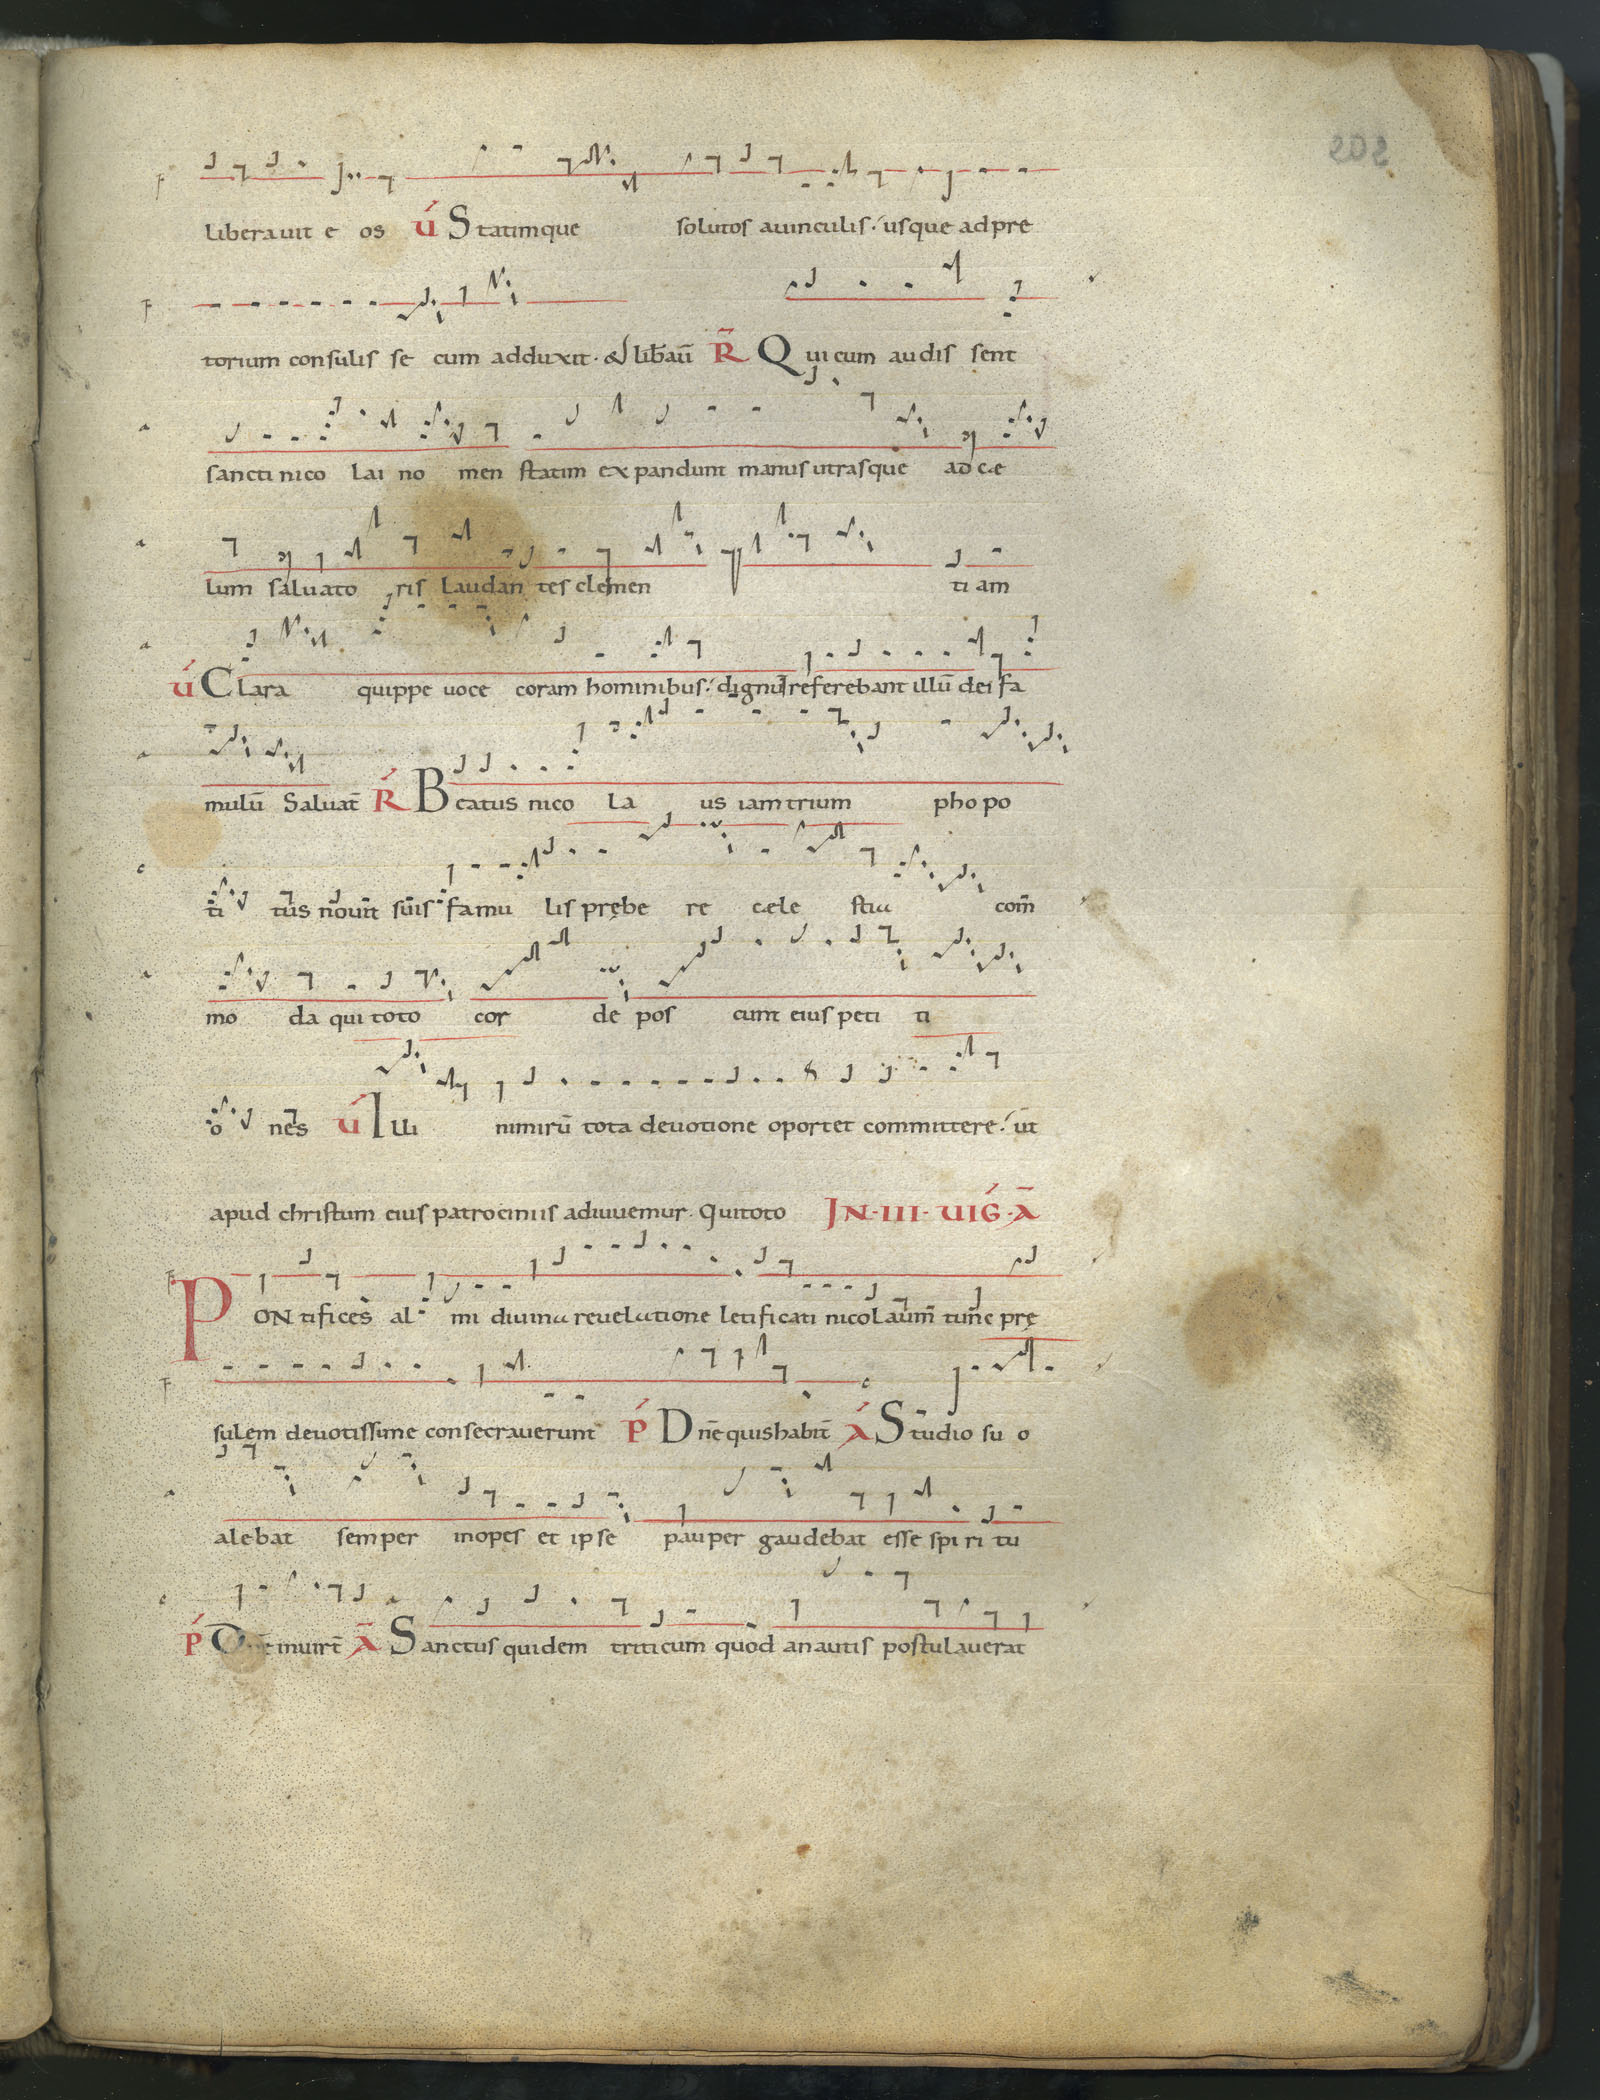 liberauit e os ú Statimque solutos auinculis. usque adpre
torium consulis se cum adduxit. & libaū R̄ Qui cum audis sent
sancti nico lai no men statim expandunt manus utrasque ad cæ
lum saluato ris laudan tes clemen ti am
ú Clara quippe uoce coram hominibus. dignū referebant illū dei fa
mulū Saluat̄ R Beatus nico la us iam trium pho po
ti tus nouit suis famu lis prębe re cæle stia com̄
mo da qui toto cor de pos cunt eius peti ti
o nes ú Illi nimirū tota deuotione oportet committere. ut
apud christum eius patrociniis adiuuemur. Quitoto IN. III. UIG. Ā
PONtifices al mi diuina reuelatione letificati nicolaum tunc prę
sulem deuotissime consecrauerunt P Dn̄e quishabit̄ A Studio su o
alebat semper inopes et ipse pauper gaudebat esse spi ri tu
P Dn̄e inuirt̄ Ā Sanctus quidem triticum quod anautis postulauerat